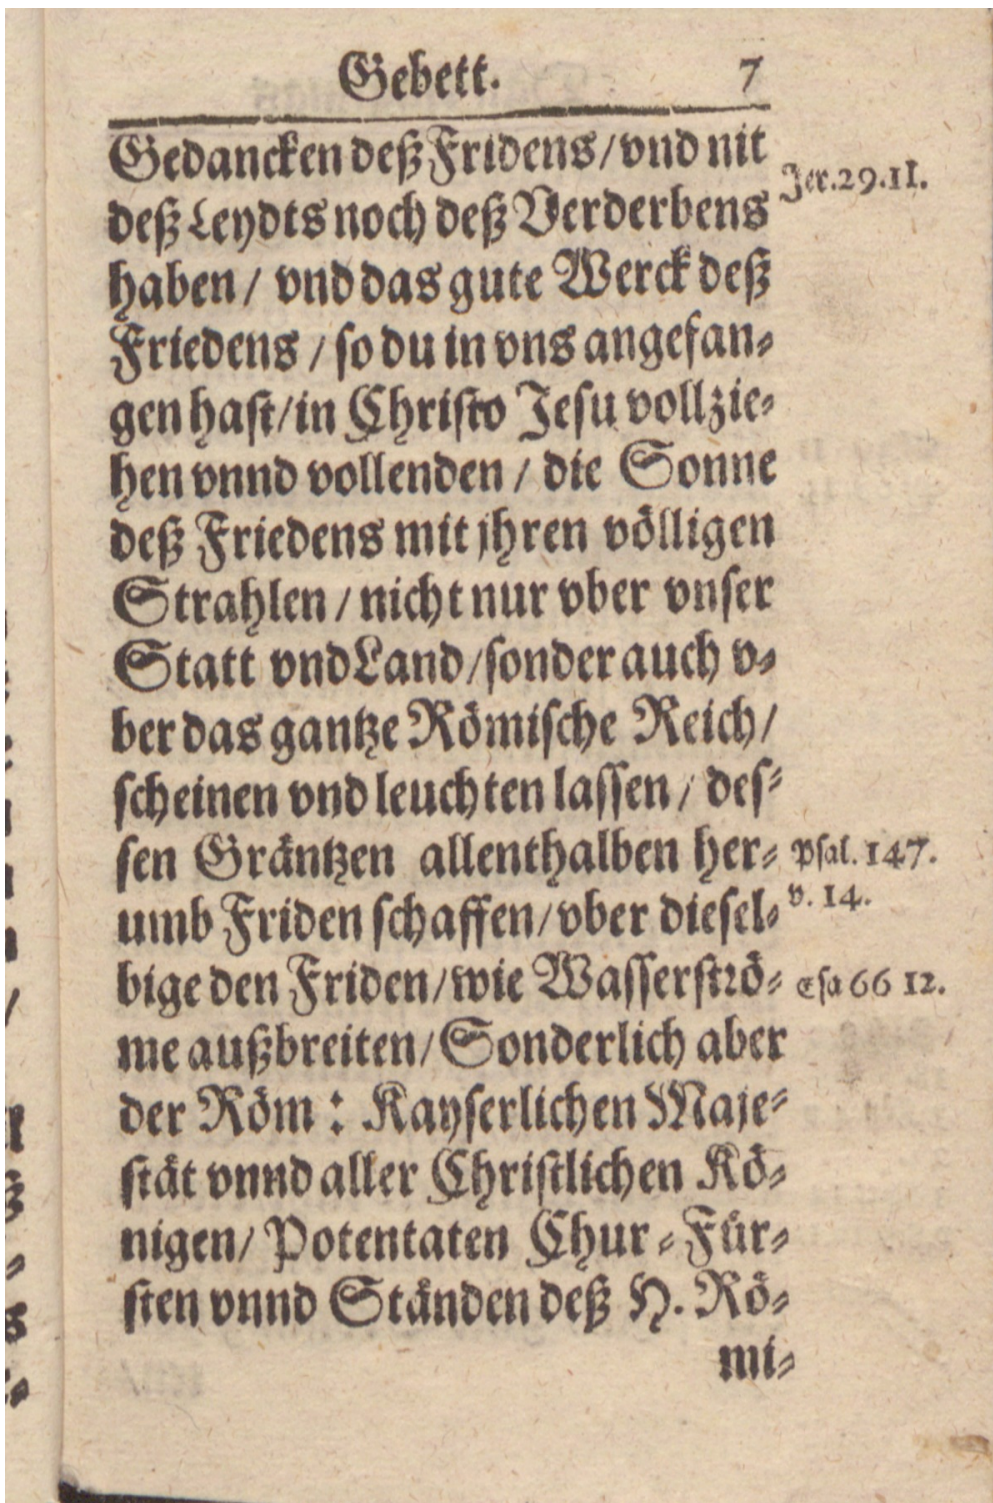 Gebett. 7
Gedancken deß Fridens/vnd nit
Jer.29.11.
deß Leydts noch deß Verderbens
haben/ vnd das gute Werck deß
Friedens / so du in vns angefan-
gen hast/in Christo Jesu vollzie-
hen vnnd vollenden / die Sonne
deß Friedens mit jhren völligen
Strahlen / nicht nur vber vnser
Statt vnd Land/sonder auch v-
ber das gantze Römische Reich/
scheinen vnd leuchten lassen / des-
sen Gräntzen allenthalben her-
Psal. 147.
v. 14.
umb Friden schaffen/vber diesel-
bige den Friden/wie Wasserströ-
Esa 66 12.
me außbreiten/Sonderlich aber
der Röm: Kayserlichen Maje-
stät vnnd aller Christlichen Kö-
nigen/ Potentaten Chur-Für-
sten vnnd Ständen deß H. Rö-
mi-